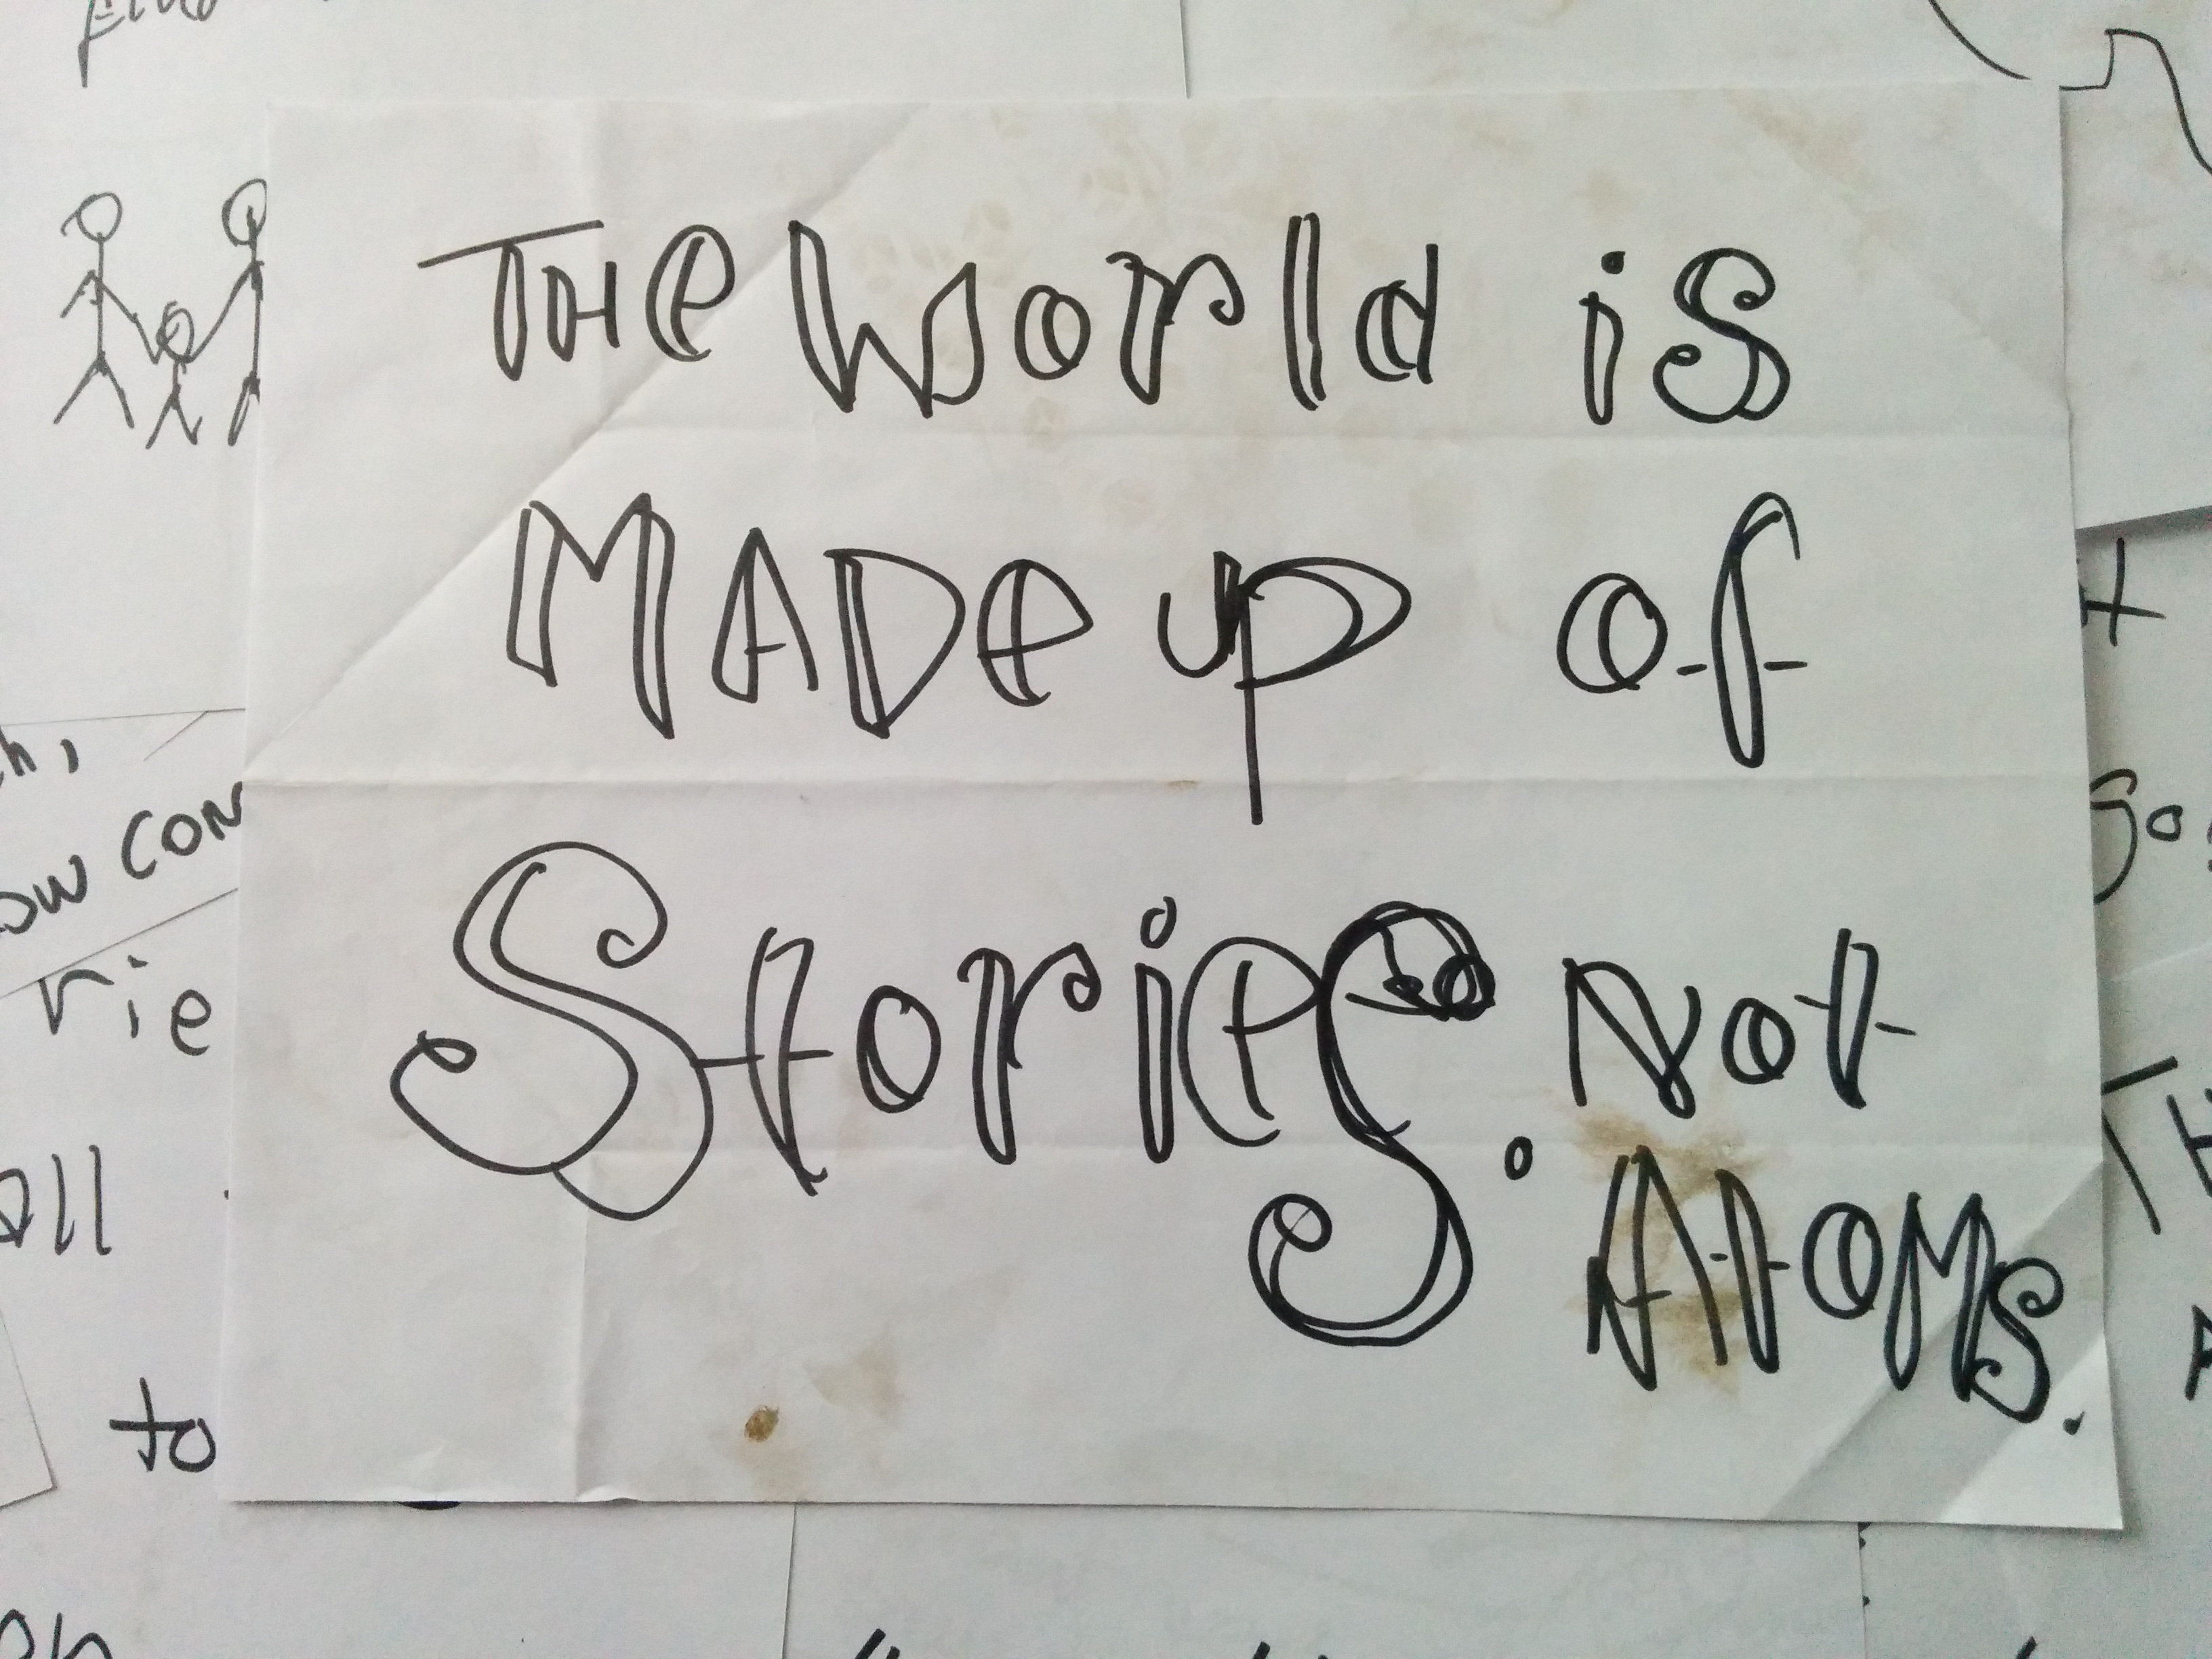 THe world is
MADe up of
Stories. Not
Atoms.
h,
ow con
rie
all
to
on
go